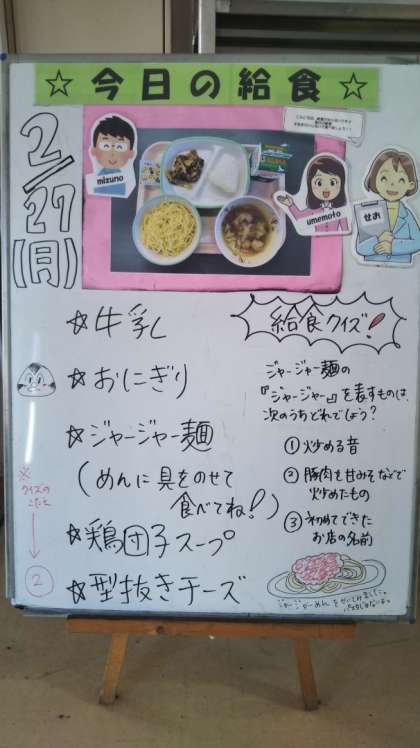 ☆今日の給食☆
2/27(月)
mizuno
umemoto
せお
☆牛乳
☆おにぎり
☆ジャージャー麺
(めんに具をのせて
食べてね!)
☆鶏団子スープ
☆型抜きチーズ
※
クイズの
こたえ
②
給食クイズ!
ジャージャー麺の
『ジャージャー』を表すものは、
次のうちどれでしょう?
①炒める音
②豚肉を甘みそなどで
炒めたもの
③初めてできた
お店の名前
ジャージャーめんを